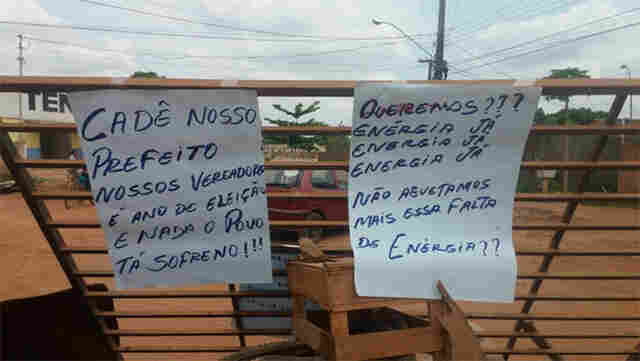 TEN
CADÊ NOSSO
PREFEITO
NOSSOS VEREADORE
É ANO DE ELEIÇÃO
E NADA O POVO
TÁ SOFRENO!!!
QUEREMOS???
ENÉRGIA JÁ
ENERGIA JÁ
ENERGIA JÁ
NÃO AGUETAMOS
MAIS ESSA FALTA
DE ENÉRGIA??